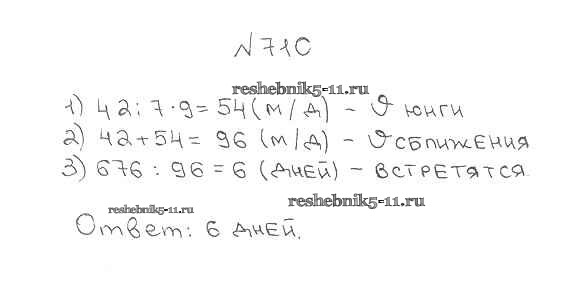 №710
reshebnik5-11.ru
1) 42 : 7 · 9 = 54 (м/д) – υ юнги
2) 42 + 54 = 96 (м/д) – υ сближения
3) 676 : 96 = 6 (дней) – встретятся.
reshebnik5-11.ru reshebnik5-11.ru
Ответ: 6 дней.